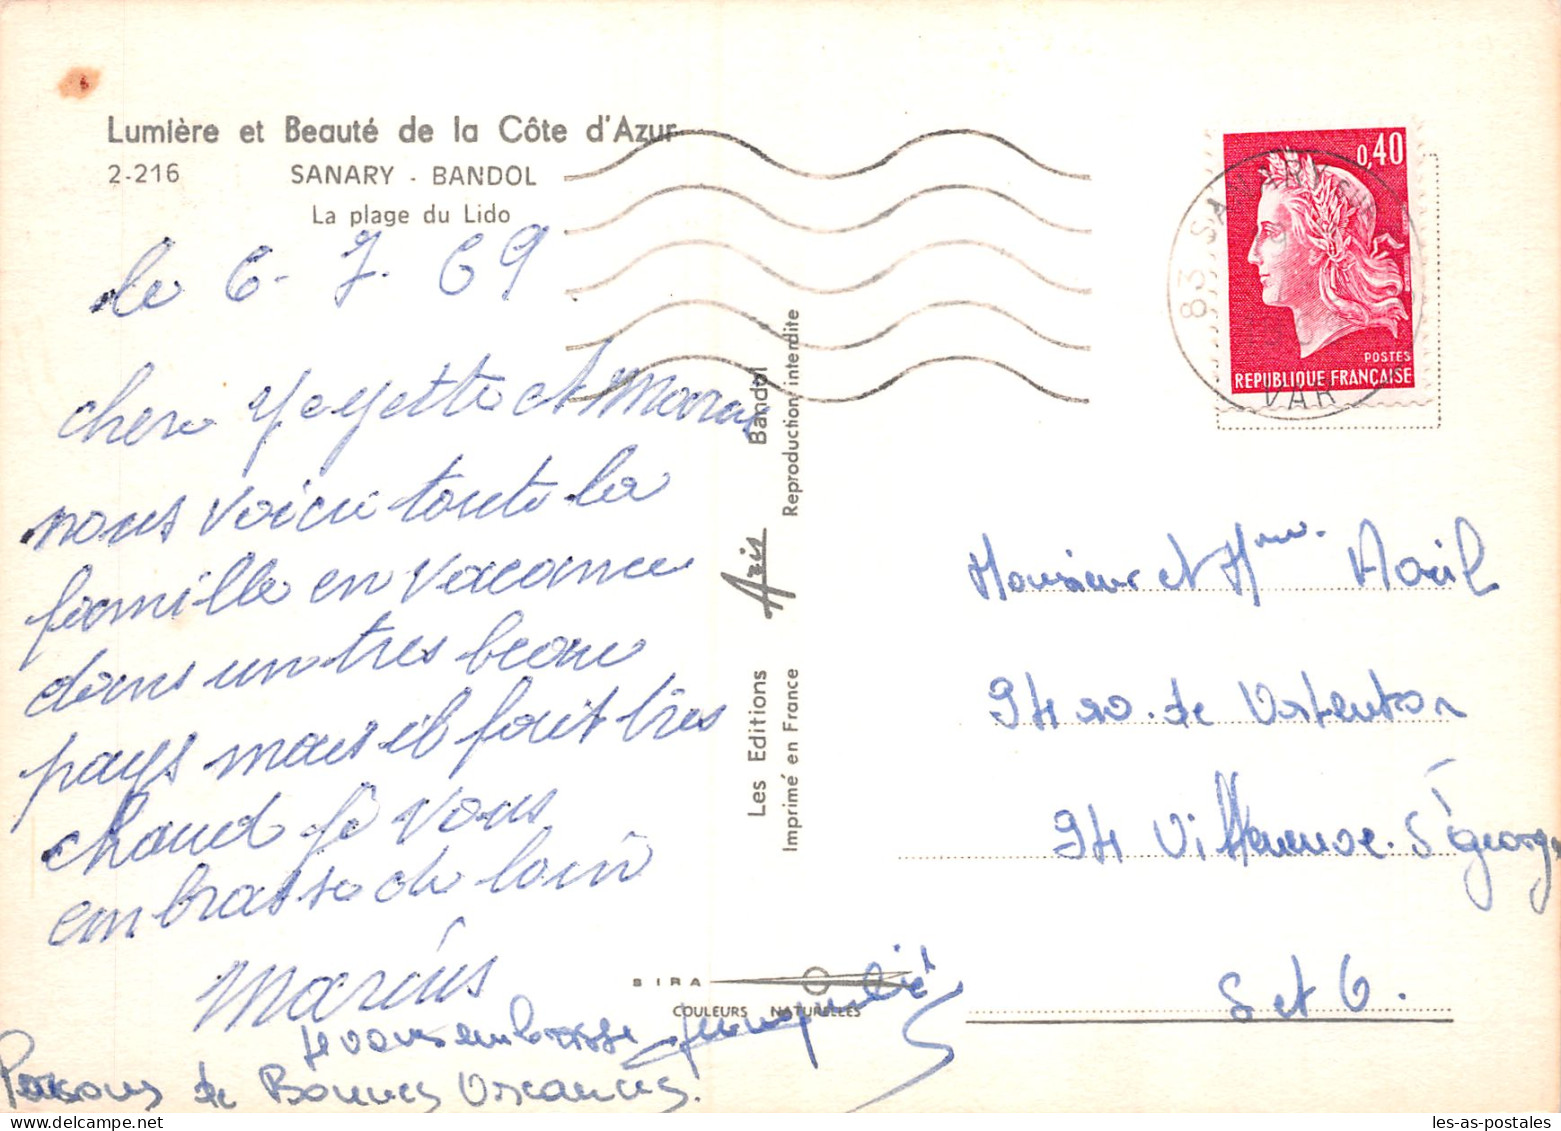 Lumière et Beauté de la Côte d'Azur
2-216 SANARY - BANDOL
La plage du Lido
le 6-7.69
chere Yeyette et
nous voici toute la
famille en vacance
dans un tres beau
pays mais il fait très
chaud je vous
embrasse de loin
Marius
Je vous embrasse
Passons de Bonnes Vacances.
Les Editions Aris Bandol
Imprimé en France Reproduction interdite
SIRA
COULEURS NATURELLES
0,40
POSTES
REPUBLIQUE FRANÇAISE
83 SANARY SUR
VAR
Monsieur et Mme
94 de
94 Villeneuve. St Georges
S et O.
les-as-postales